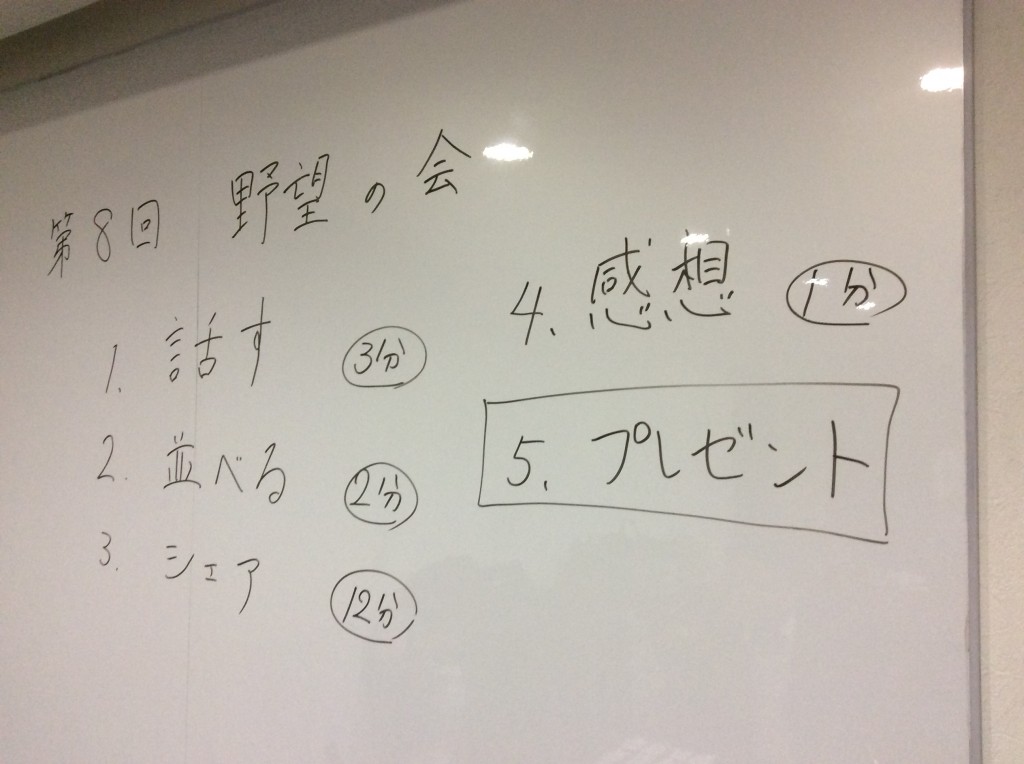 第8回 野望の会
1. 話す 3分
2. 並べる 2分
3. シェア 12分
4. 感想 1分
5. プレゼント